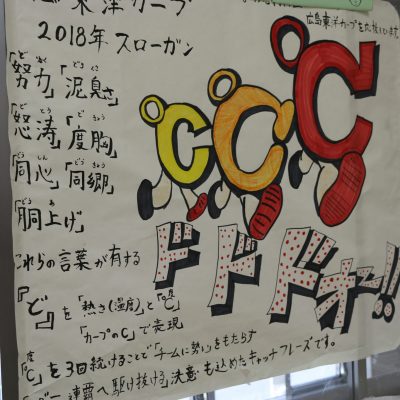 東洋カープ
広島東洋カープを応援しています
2018年 スローガン
「努力」「泥臭さ」
「怒涛」「度胸」
「同心」「同郷」
「胴上げ」
℃℃℃
ドドドォー!!
これらの言葉が有する
『ど』を「熱さ(温度)」と「℃」
「カープのC」で表現
「℃」を3回続けることで「チームに勢い」をもたらす
連覇へ駆け抜ける決意も込めたキャッチフレーズです。